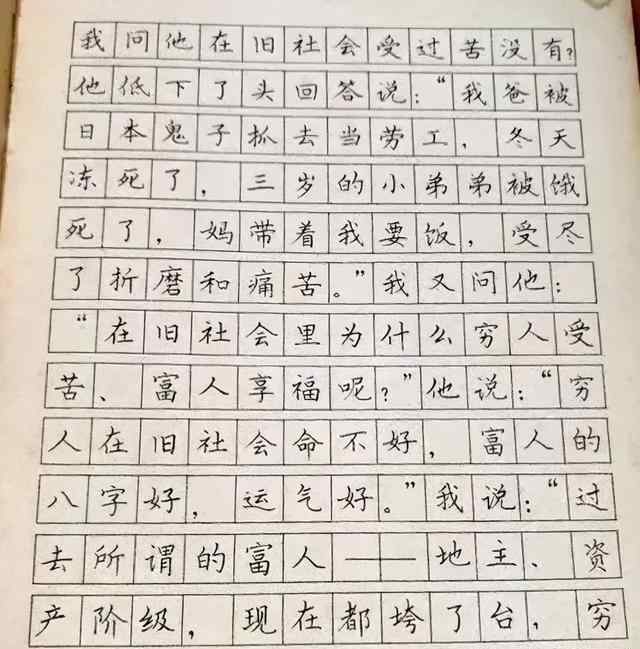 我问他在旧社会受过苦没有?
他低下了头回答说:“我爸被
日本鬼子抓去当劳工,冬天
冻死了,三岁的小弟弟被饿
死了,妈带着我要饭,受尽
了折磨和痛苦。”我又问他:
“在旧社会里为什么穷人受
苦、富人享福呢?”他说:“穷
人在旧社会命不好,富人的
八字好,运气好。”我说:“过
去所谓的富人——地主、资
产阶级,现在都垮了台,穷